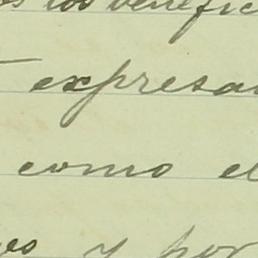 os los benefic
expresa
como el
y por